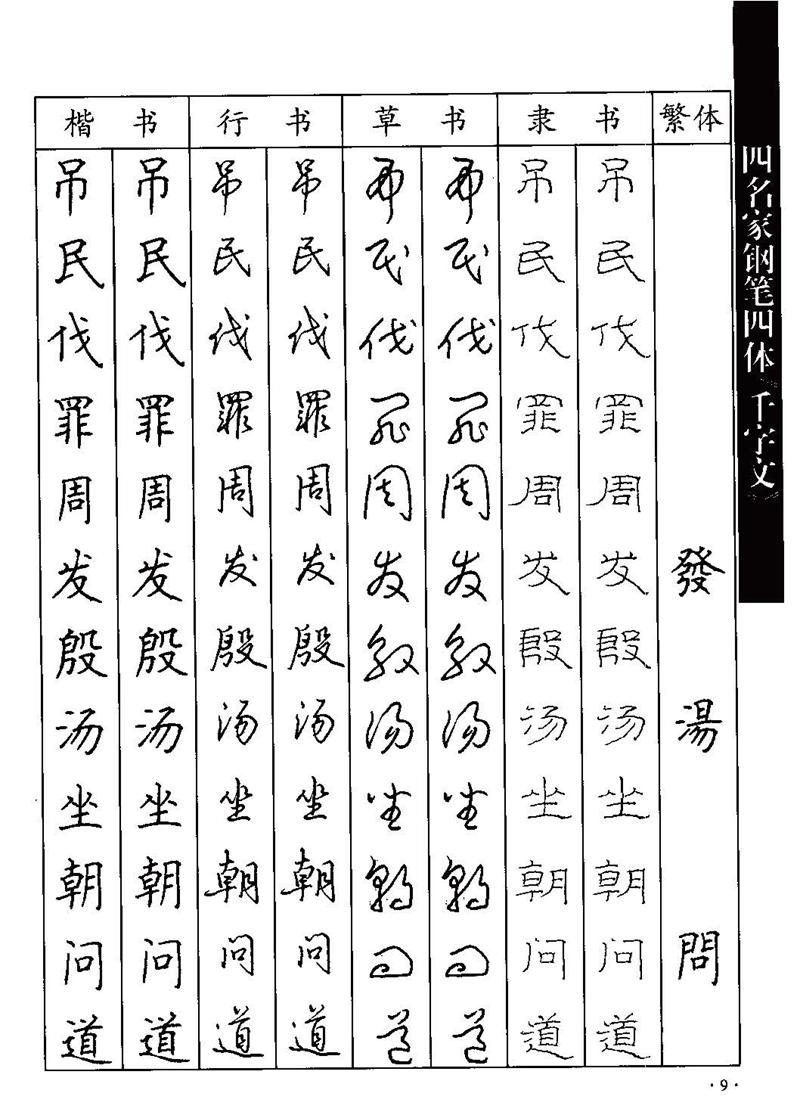 楷书 行书 草书 隶书 繁体
吊 吊 吊 吊 吊 吊 吊 吊
民 民 民 民 民 民 民 民
伐 伐 伐 伐 伐 伐 伐 伐
罪 罪 罪 罪 罪 罪 罪 罪
周 周 周 周 周 周 周 周
发 发 发 发 发 发 发 发 發
殷 殷 殷 殷 殷 殷 殷 殷
汤 汤 汤 汤 汤 汤 汤 汤 湯
坐 坐 坐 坐 坐 坐 坐 坐
朝 朝 朝 朝 朝 朝 朝 朝
问 问 问 问 问 问 问 问 問
道 道 道 道 道 道 道 道
四名家钢笔四体《千字文》
·9·